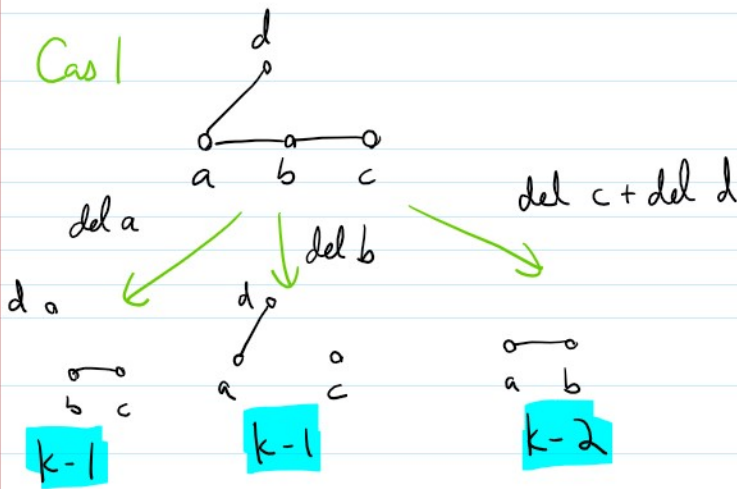 Cas 1
d
a b c
del a
del b
del c + del d
d
d
b c
a c
a b
k-1
k-1
k-2